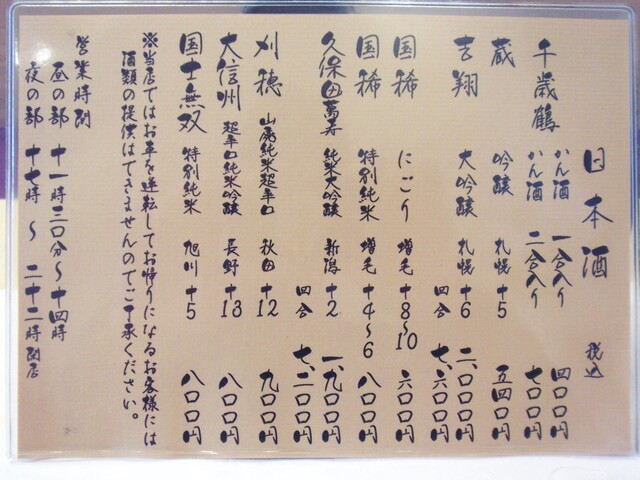 日本酒 税込
千歳鶴 かん酒 一合入り 四〇〇円
かん酒 二合入り 七〇〇円
蔵 吟醸 札幌 +5 五四〇円
吉翔 大吟醸 札幌 +6 二、〇〇〇円
四合 七、六〇〇円
国稀 にごり 増毛 +8〜10 六〇〇円
国稀 特別純米 増毛 +4〜6 八〇〇円
久保田萬寿 純米大吟醸 新潟 +2 一、九〇〇円
四合 七、二〇〇円
刈穂 山廃純米超辛口 秋田 +12 九〇〇円
大信州 超辛口純米吟醸 長野 +13 八〇〇円
国士無双 特別純米 旭川 +5 八〇〇円
※当店ではお車を運転してお帰りになるお客様には
酒類の提供はできませんのでご了承ください。
営業時間
昼の部 十一時三〇分〜十四時
夜の部 十七時〜二十二時閉店